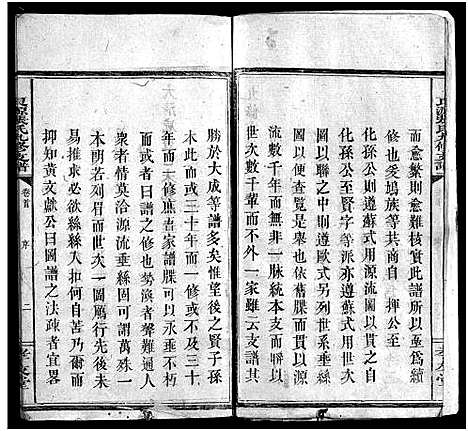 愈聚則愈難核實此譜所以亟爲續
修也爰鳩族等共商自 揮公至
化孫公則遵蘇式用源流圖以貫之自
化孫公至賢字等派亦遵蘇式
中則遵歐式另
以便查覽是舉也依舊牒而
千年而無非一脉統本支而聯以
世次數千輩而不外一家雖云支譜其
勝於大成等譜多矣惟望後之賢子孫
或三十年而一修或不及三十
年而大修庶吾家譜牒可以永垂不朽
矣或者曰譜之修也勢渙者聲難通人
衆者情莫洽源流垂絲例固可溯然
木明若列以世次一圖篤行先後未
易推求必欲絲絲人扣何自苦乃爾而
抑知黃文獻公曰圖譜之法疎者宜畧
張氏九修支譜
卷首
序
二
孝友堂